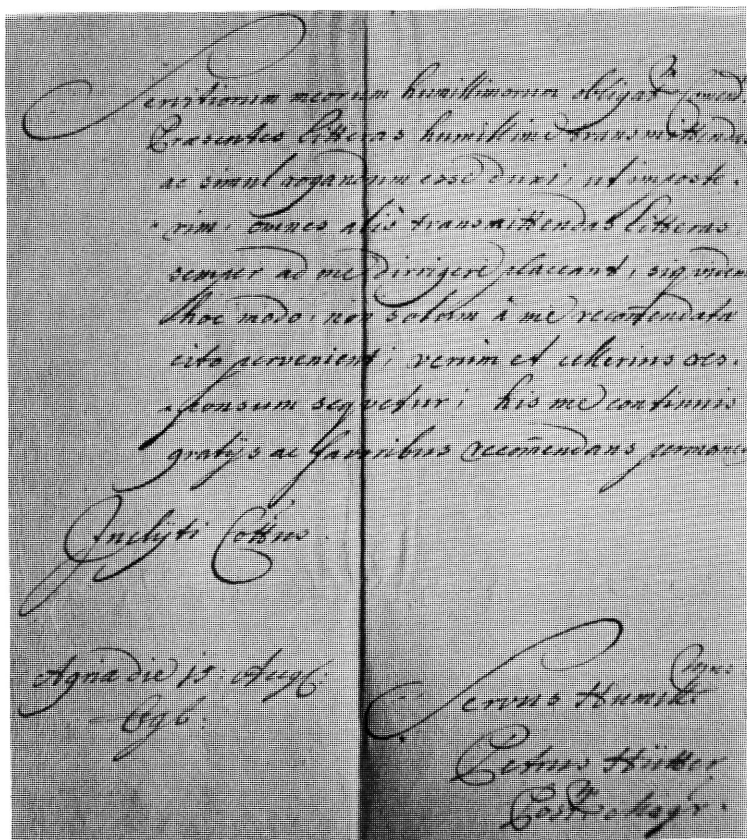 Servitiorum meorum humillimorum obligat: Comend:
Præsentes litteras humillime transmittendas
ac simul rogandum esse duxi, ut imposte-
rim, omnes alis transmittendas litteras
semper ad me dirrigere placeant, siquidem
hoc modo, non solum à me recom̃endata
cito pervenient, verum et cellerius res-
ponsum sequetur; his me continuis
gratijs ac favoribus recom̃endans, permaneo
Inclyti Cottus
Agria die 15: Aug:
Servus Humill:
Petrus Hütter